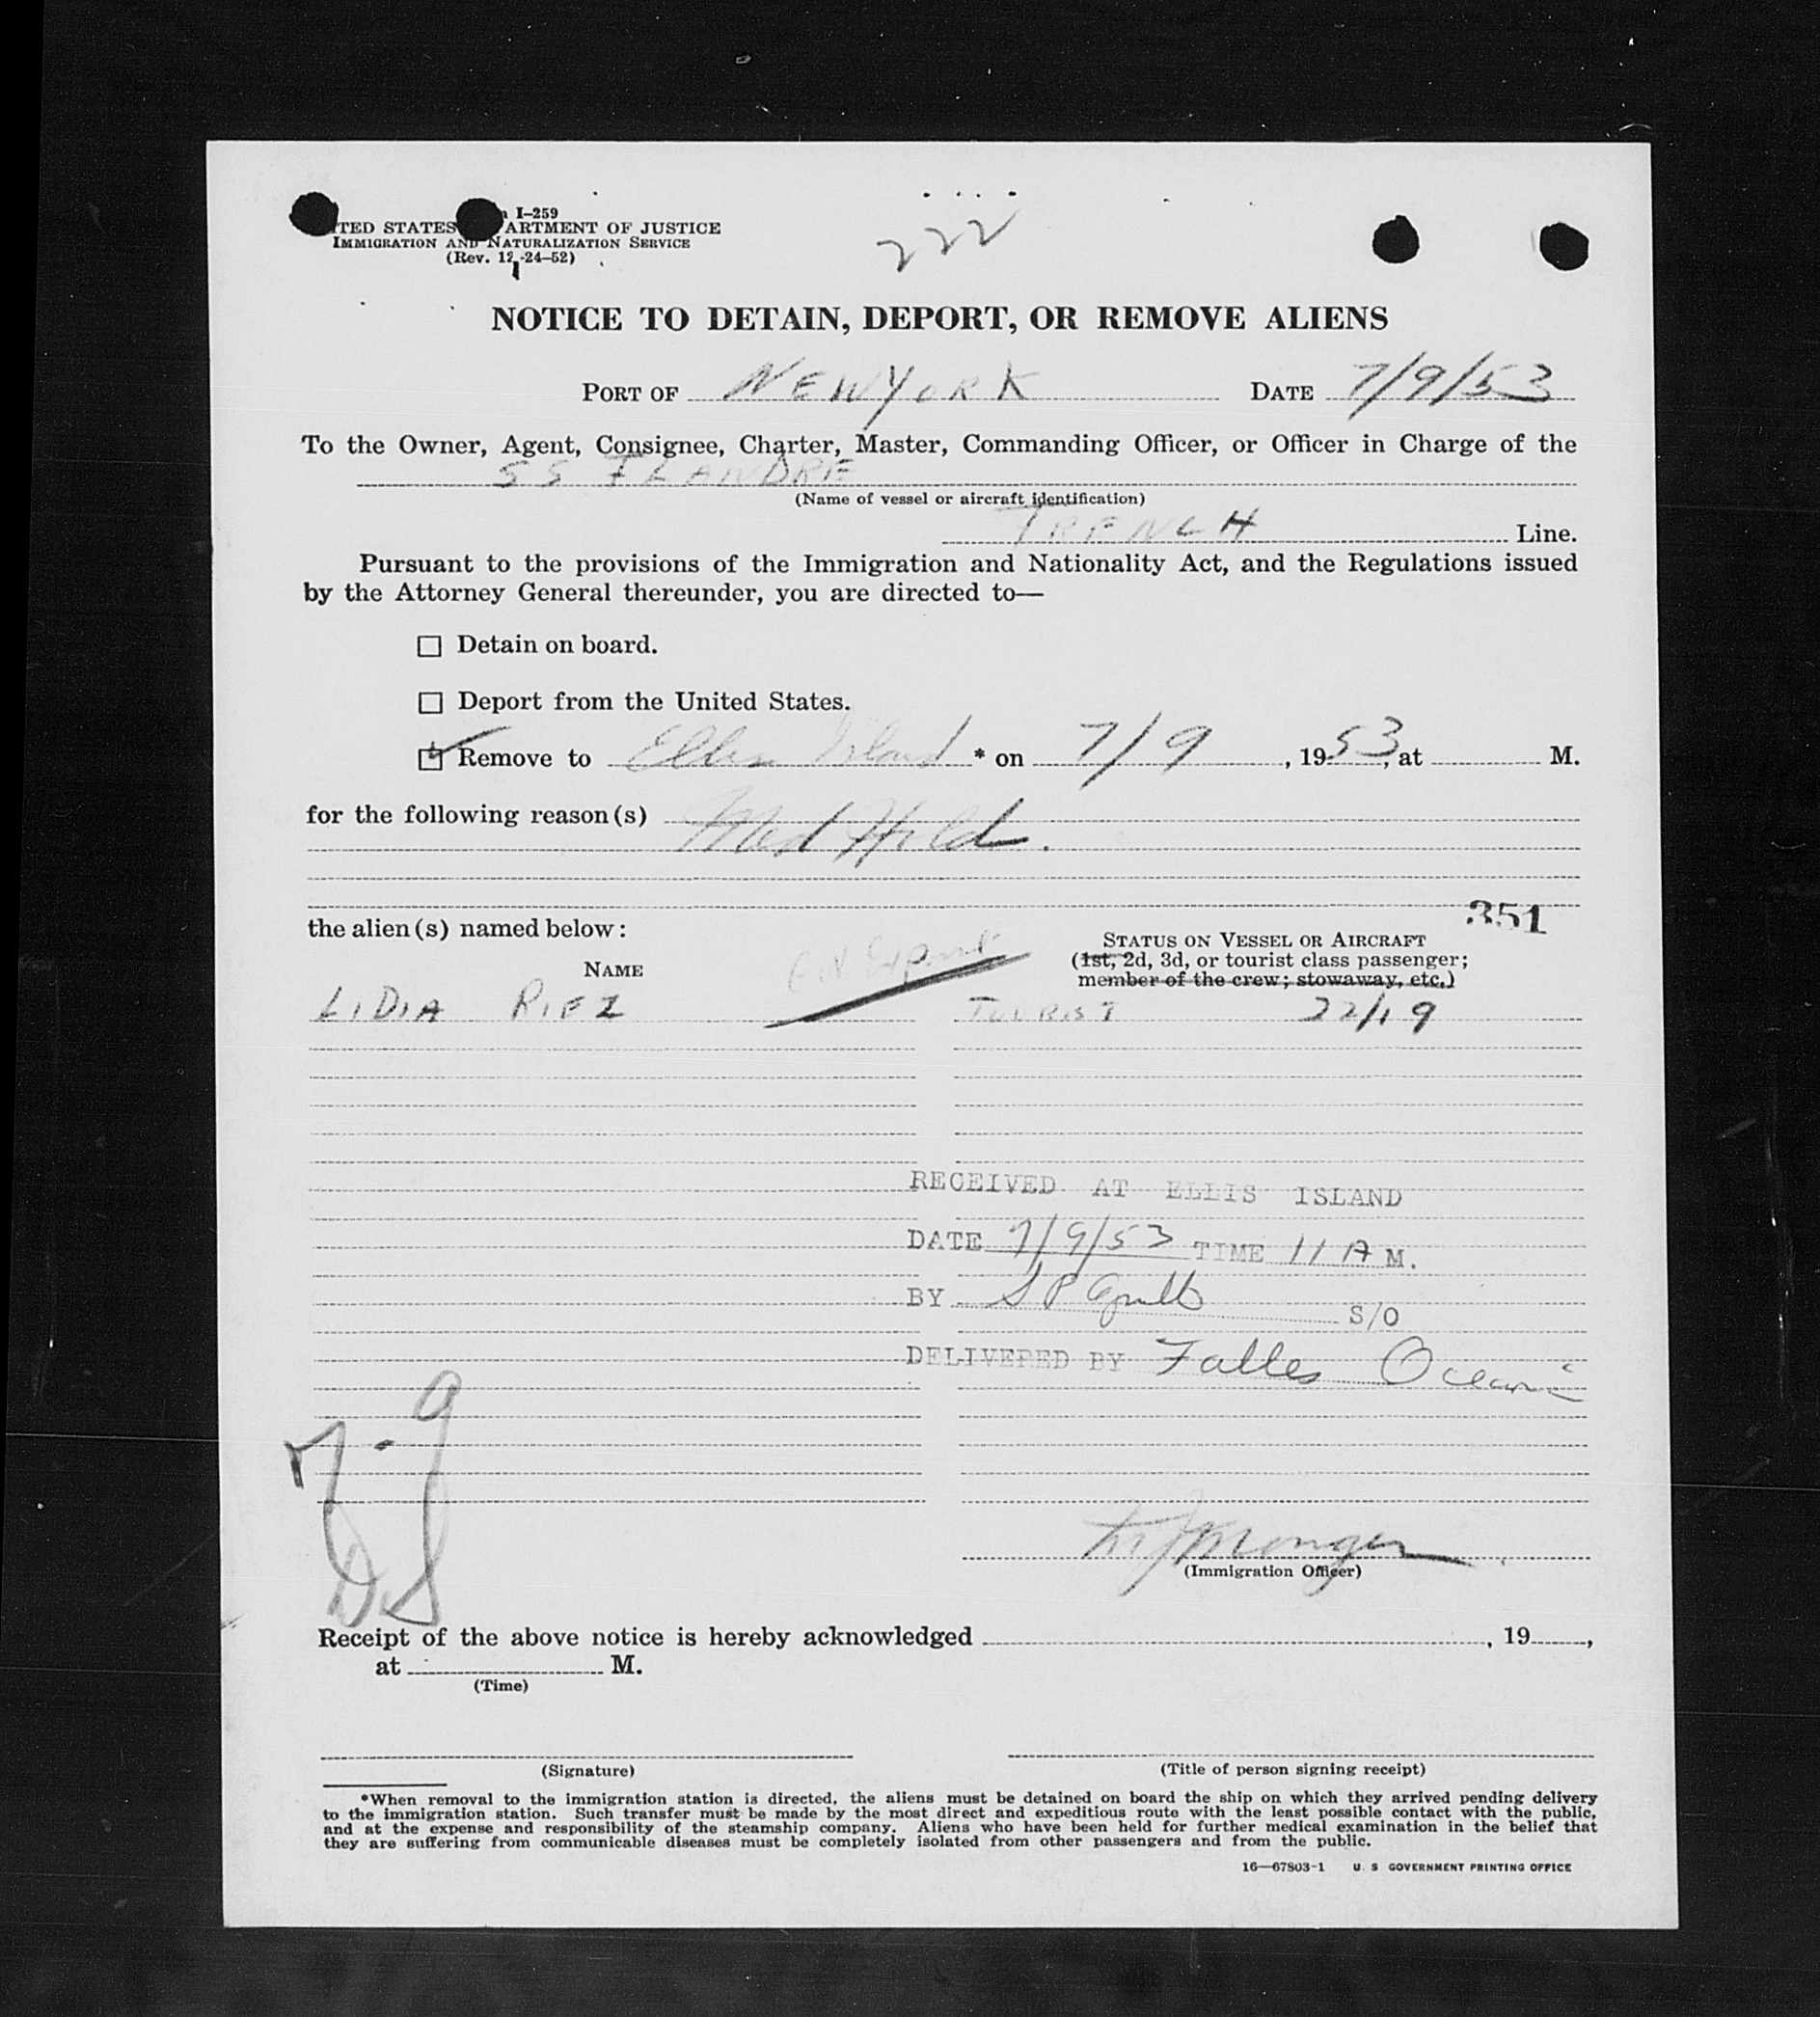 I-259
UNITED STATES DEPARTMENT OF JUSTICE
IMMIGRATION AND NATURALIZATION SERVICE
(Rev. 12-24-52)
222
NOTICE TO DETAIN, DEPORT, OR REMOVE ALIENS
PORT OF NEW YORK DATE 7/9/53
To the Owner, Agent, Consignee, Charter, Master, Commanding Officer, or Officer in Charge of the
SS FLANDRE
(Name of vessel or aircraft identification)
FRENCH Line.
Pursuant to the provisions of the Immigration and Nationality Act, and the Regulations issued
by the Attorney General thereunder, you are directed to—
Detain on board.
Deport from the United States.
Remove to Ellis Island * on 7/9, 1953, at M.
for the following reason(s)
Med Hold.
351
the alien(s) named below:
STATUS ON VESSEL OR AIRCRAFT
NAME (1st, 2d, 3d, or tourist class passenger;
member of the crew; stowaway, etc.)
LIDIA RIEZ TOURIST 22/19
RECEIVED AT ELLIS ISLAND
DATE 7/9/53 TIME 11 A M.
BY S/O
DELIVERED BY Falles Oceanic
7-9
DS
(Immigration Officer)
Receipt of the above notice is hereby acknowledged , 19 ,
at M.
(Time)
(Signature) (Title of person signing receipt)
*When removal to the immigration station is directed, the aliens must be detained on board the ship on which they arrived pending delivery
to the immigration station. Such transfer must be made by the most direct and expeditious route with the least possible contact with the public,
and at the expense and responsibility of the steamship company. Aliens who have been held for further medical examination in the belief that
they are suffering from communicable diseases must be completely isolated from other passengers and from the public.
16—67803-1 U. S GOVERNMENT PRINTING OFFICE